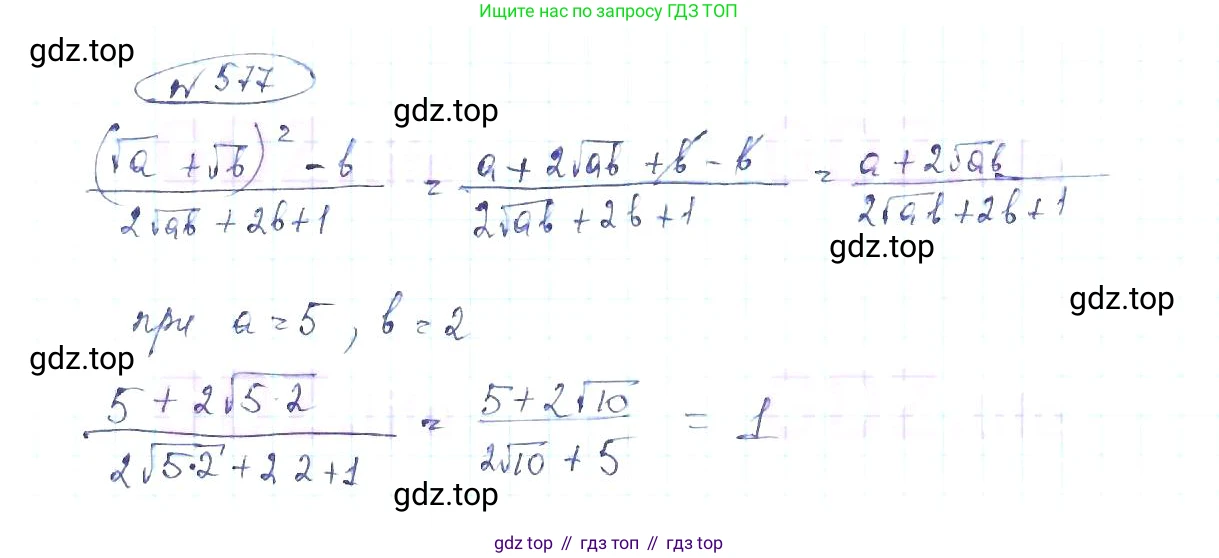 Ищите нас по запросу ГДЗ ТОП
gdz.top
№ 577
gdz.top
(√a + √b)² - b / 2√ab + 2b + 1 = a + 2√ab + b - b / 2√ab + 2b + 1 = a + 2√ab / 2√ab + 2b + 1
gdz.top
gdz.top
при a = 5, b = 2
gdz.top
5 + 2√5·2 / 2√5·2 + 2 2 + 1 = 5 + 2√10 / 2√10 + 5 = 1
gdz.top
gdz.top // гдз топ // гдз.top